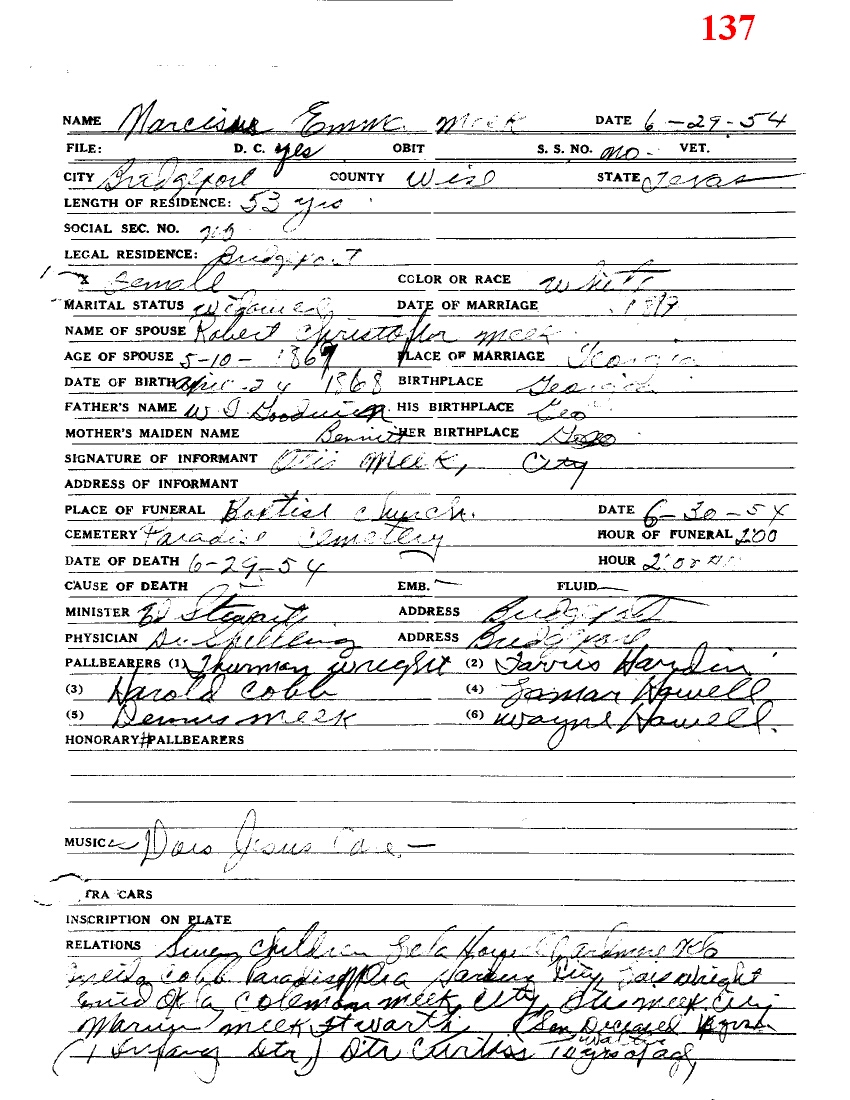 137
NAME Narcissus Emma Meek DATE 6-29-54
FILE: D. C. yes OBIT S. S. NO. no- VET.
CITY Bridgeport COUNTY Wise STATE Texas
LENGTH OF RESIDENCE: 53 yrs
SOCIAL SEC. NO. no
LEGAL RESIDENCE: Bridgeport
X Female COLOR OR RACE White
MARITAL STATUS Widowed DATE OF MARRIAGE
NAME OF SPOUSE Robert Christofher Meek
AGE OF SPOUSE 5-10-1869 PLACE OF MARRIAGE Georgia
DATE OF BIRTH April 24 1868 BIRTHPLACE Georgia
FATHER'S NAME W Goodwin HIS BIRTHPLACE Geo
MOTHER'S MAIDEN NAME Bennett HER BIRTHPLACE Geo
SIGNATURE OF INFORMANT Otis Meek, City
ADDRESS OF INFORMANT
PLACE OF FUNERAL Baptist Church. DATE 6-30-54
CEMETERY Paradise Cemetery HOUR OF FUNERAL 2:00
DATE OF DEATH 6-29-54 HOUR 2:
CAUSE OF DEATH EMB. FLUID
MINISTER Ed Stewart ADDRESS Bridgeport
PHYSICIAN Dr. Spelling ADDRESS Bridgeport
PALLBEARERS (1) Thurman Wright (2) Harden
(3) Harold Cobb (4) Lamar Howell
(5) Dennis Meek (6) Wayne Howell.
HONORARY PALLBEARERS
MUSIC Does Jesus Care -
TRA CARS
INSCRIPTION ON PLATE
RELATIONS Seven Children Lela Howell
Cobb Paradise Harden City, Wright
Enid Okla Coleman Meek, City, Otis Meek, City
Meek Ft Worth (Son Deceased
(1 Infant Dtr) Dtr 10 yrs of age,